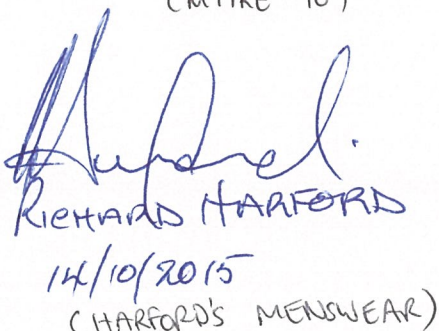 Harford.
RICHARD HARFORD
14/10/2015
(HARFORD'S MENSWEAR)